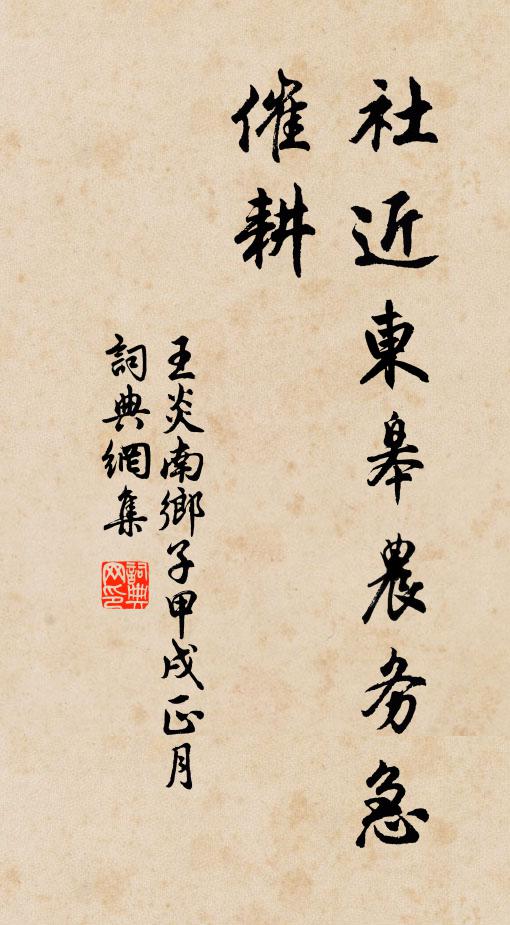 社近東皋農务急
催耕
王炎南鄉子甲戌正月
詞典網集
詞典网印